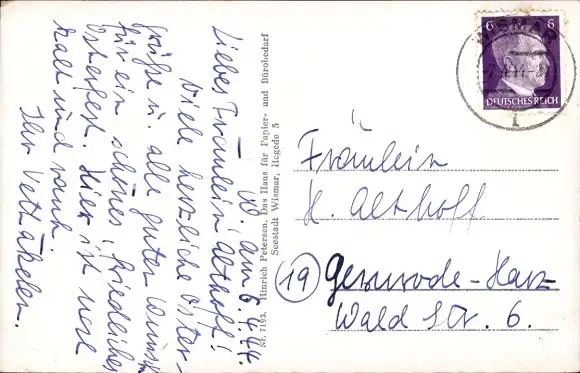 W. am 6.4.44.
Liebes Fräulein Althoff!
Viele herzliche Oster-
grüße u. alle guten Wünsche
für ein schönes, friedliches
Osterfest. Hier ist
kalt und rauh
Ihr
Nr. 7193. Hinrich Petersen, Das Haus für Papier- und Bürobedarf
Seestadt Wismar, Hegede 5
WISMAR
6 6
DEUTSCHES REICH
Fräulein
H. Althoff
(19) Gernrode-Harz
Wald Str. 6.